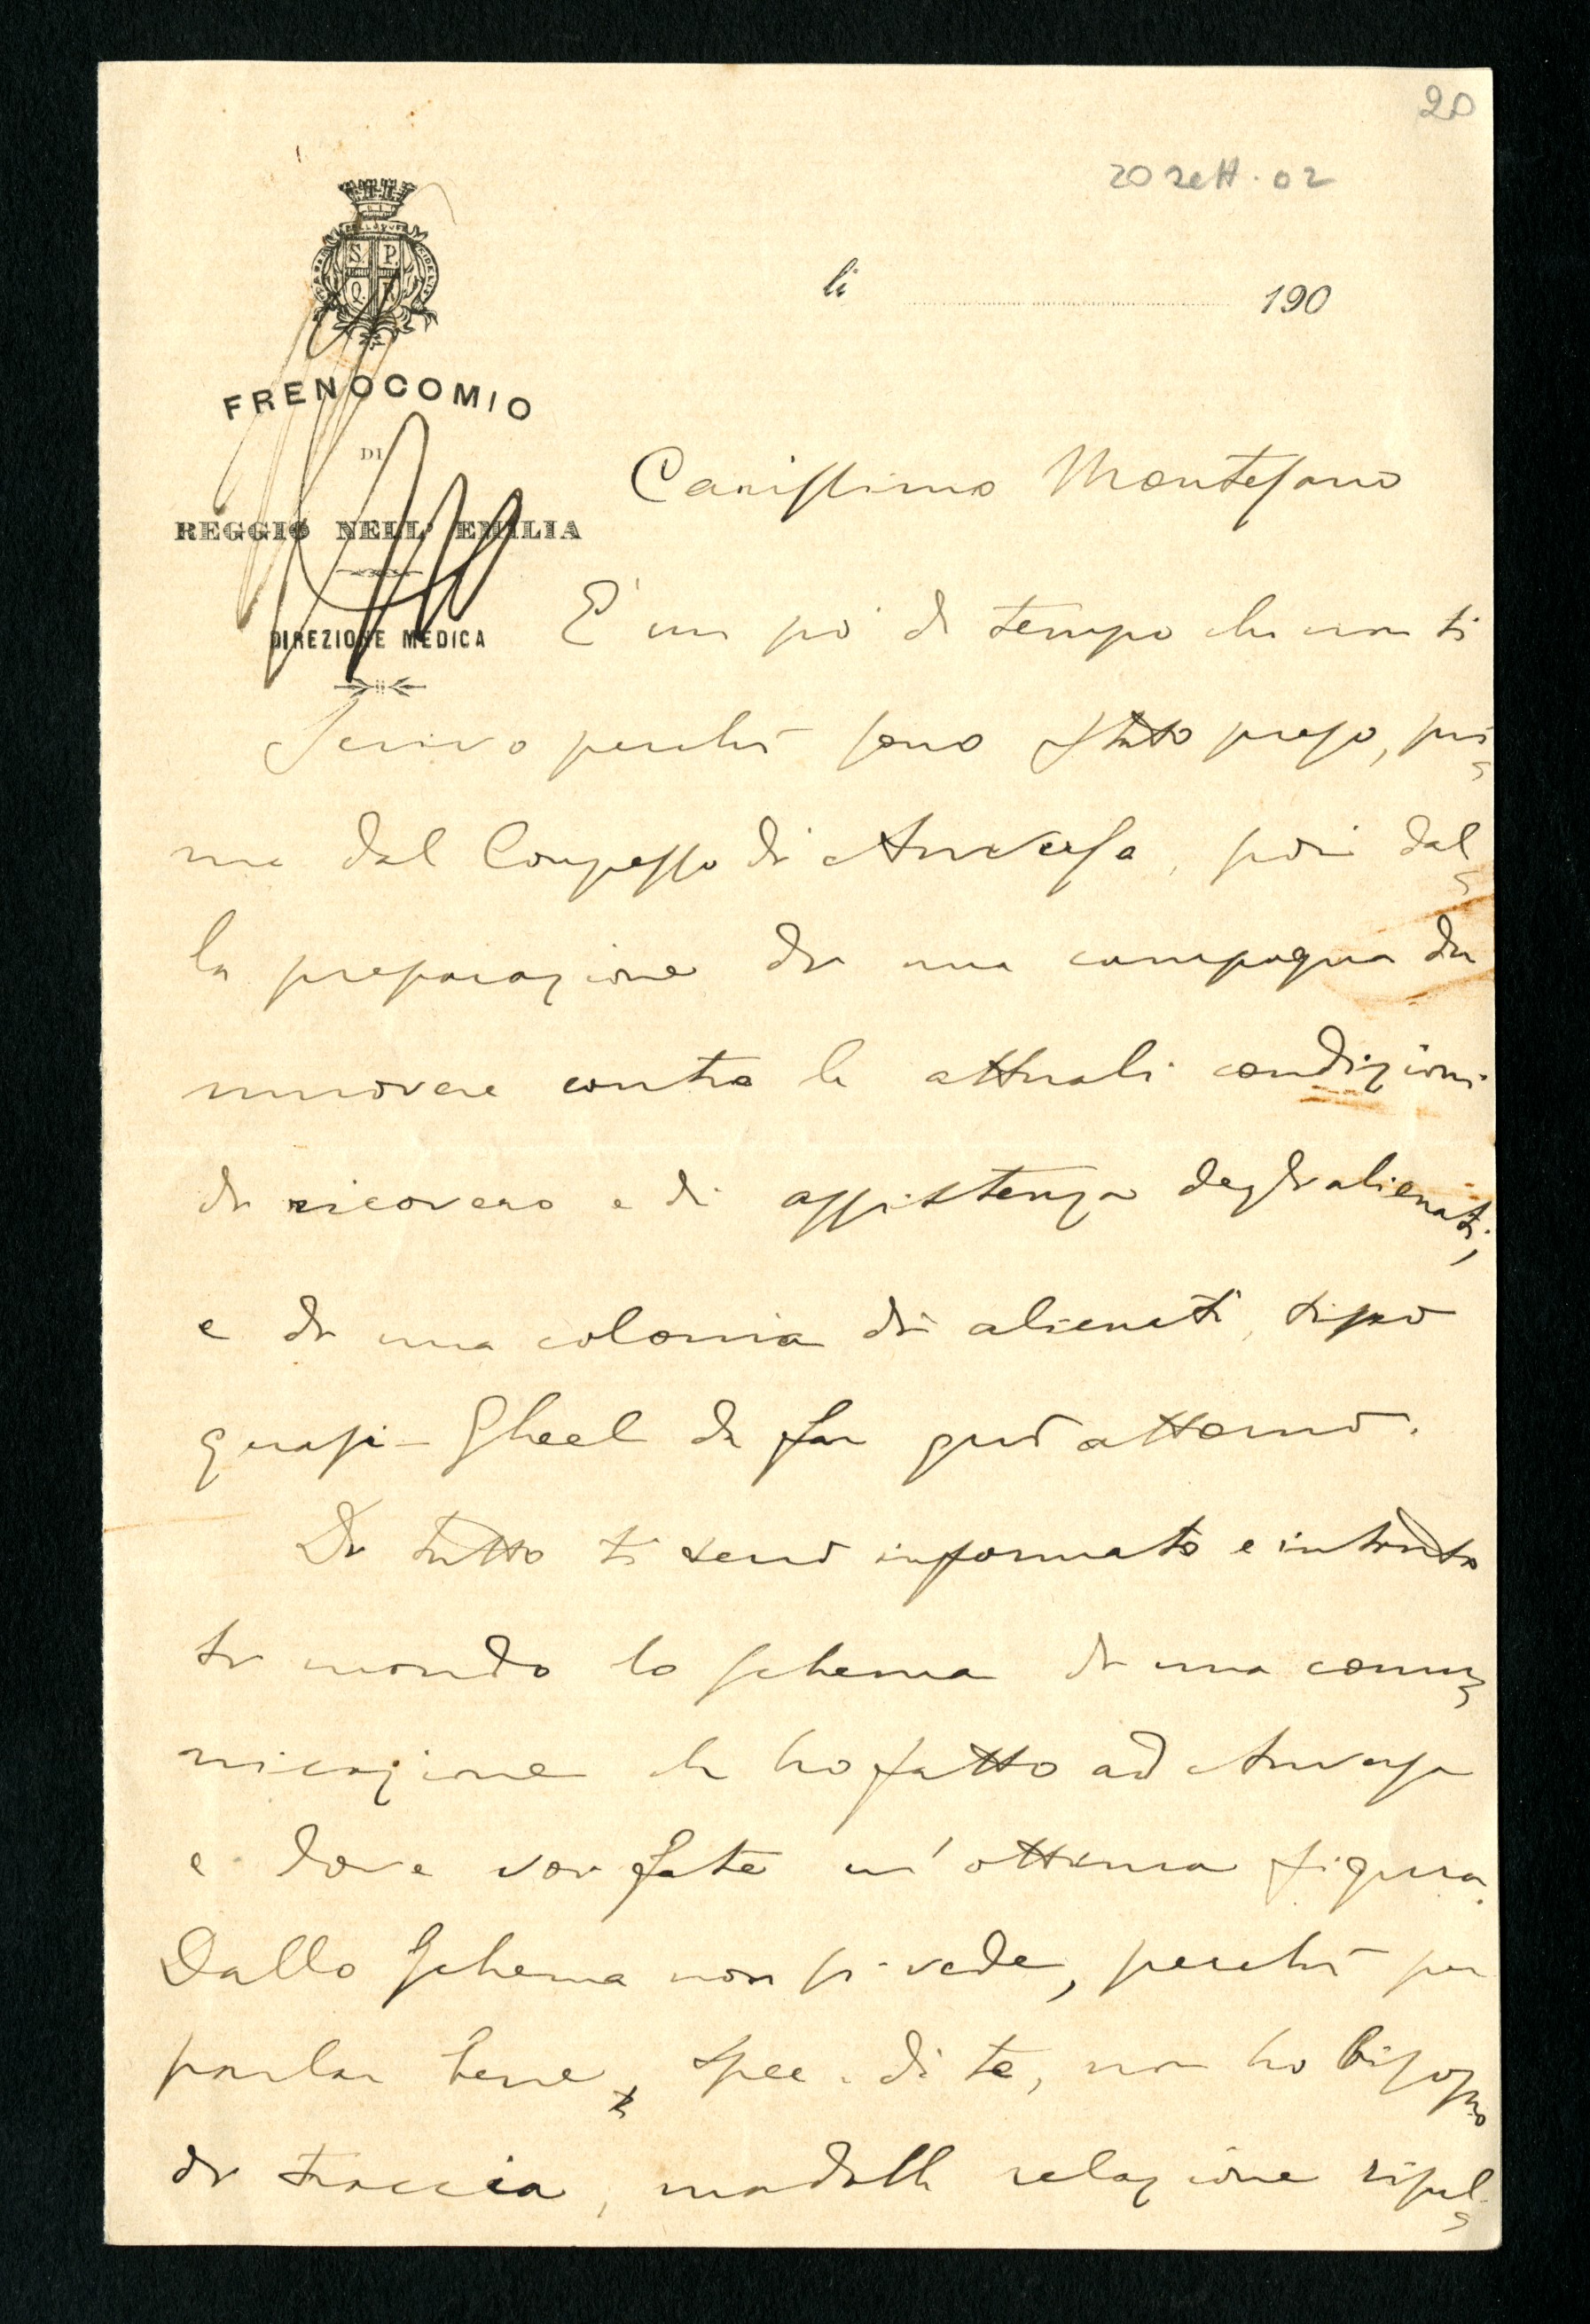 20
20 sett. 02
S. P. Q. R.
lì 190
FRENOCOMIO
DI
REGGIO NELL' EMILIA
DIREZIONE MEDICA
Carissimo Montesano
E' un po' di tempo che non ti
scrivo perchè sono stato preso, pri=
ma dal Congresso di Anversa, poi dal=
la preparazione di una campagna da
muovere contro le attuali condizioni
di ricovero e di assistenza degli alienati,
e di una colonia di alienati, tipo
quasi-Gheel da far qui attorno.
Di tutto ti terrò informato e intanto
ti mando lo schema di una comu=
nicazione che ho fatto ad Anversa
e dove voi fate un'ottima figura.
Dallo schema non si vede, perchè per
parlar bene, spec. di te, non ho bisogno
di traccia, ma dalla relazione risul=